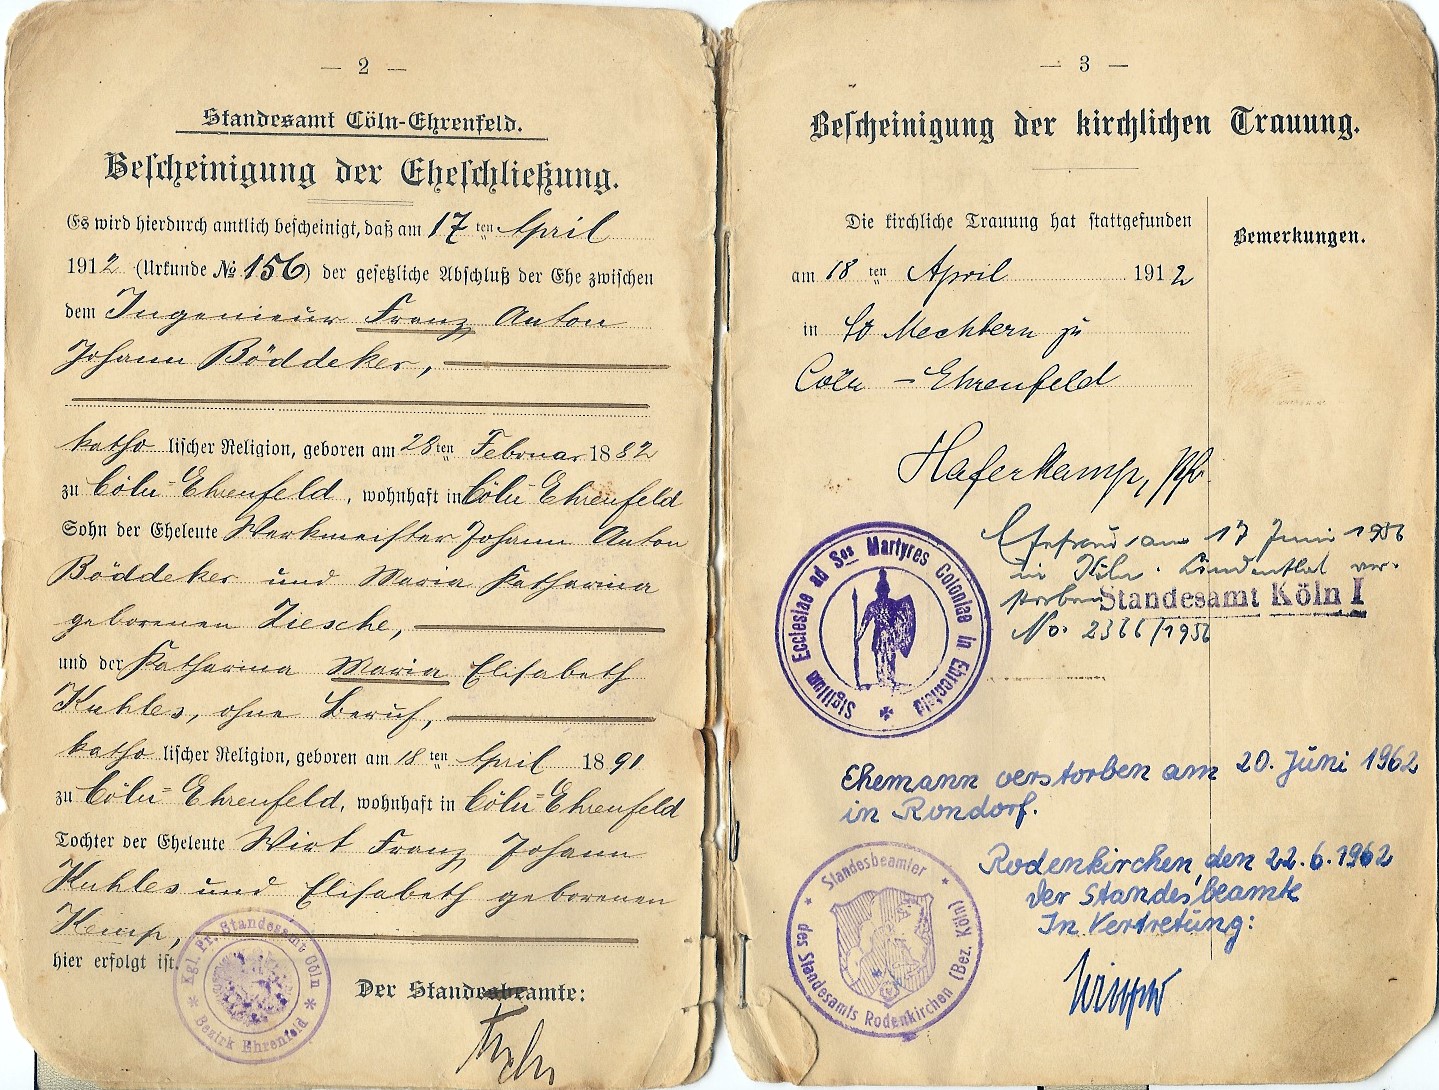 — 2 —
Standesamt Cöln-Ehrenfeld.
Bescheinigung der Eheschließung.
Es wird hierdurch amtlich bescheinigt, daß am 17 ten April
1912 (Urkunde № 156) der gesetzliche Abschluß der Ehe zwischen
dem Ingenieur Franz Anton
Johann Böddeker,
katholischer Religion, geboren am 28ten Februar 1882
zu Cöln-Ehrenfeld, wohnhaft in Cöln-Ehrenfeld
Sohn der Eheleute Werkmeister Johann Anton
Böddeker und Maria Katharina
geborenen Ziesche,
und der Katharina Maria Elisabeth
Kuhles, ohne Beruf,
katholischer Religion, geboren am 18 ten April 1891
zu Cöln-Ehrenfeld, wohnhaft in Cöln-Ehrenfeld
Tochter der Eheleute Wirt Franz Johann
Kuhles und Elisabeth geborenen
Kemp,
hier erfolgt ist.
Der Standesbeamte:
Kgl. Pr. Standesamt Cöln
Bezirk Ehrenfeld
— 3 —
Bescheinigung der kirchlichen Trauung.
Die kirchliche Trauung hat stattgefunden
Bemerkungen.
am 18 ten April 1912
in St Mechtern zu
Cöln - Ehrenfeld
Haferkamp, Pfr.
Sigillum Ecclesiae ad Sos Martyres Coloniae in Ehrenfeld
Ehefrau am 17 Juni 1956
in Köln-Lindenthal ver-
storben
Standesamt Köln I
No. 2366/1956
Ehemann verstorben am 20. Juni 1962
in Rondorf.
Rodenkirchen, den 22.6.1962
Der Standesbeamte
In Vertretung:
Standesbeamter
des Standesamts Rodenkirchen (Bez. Köln)